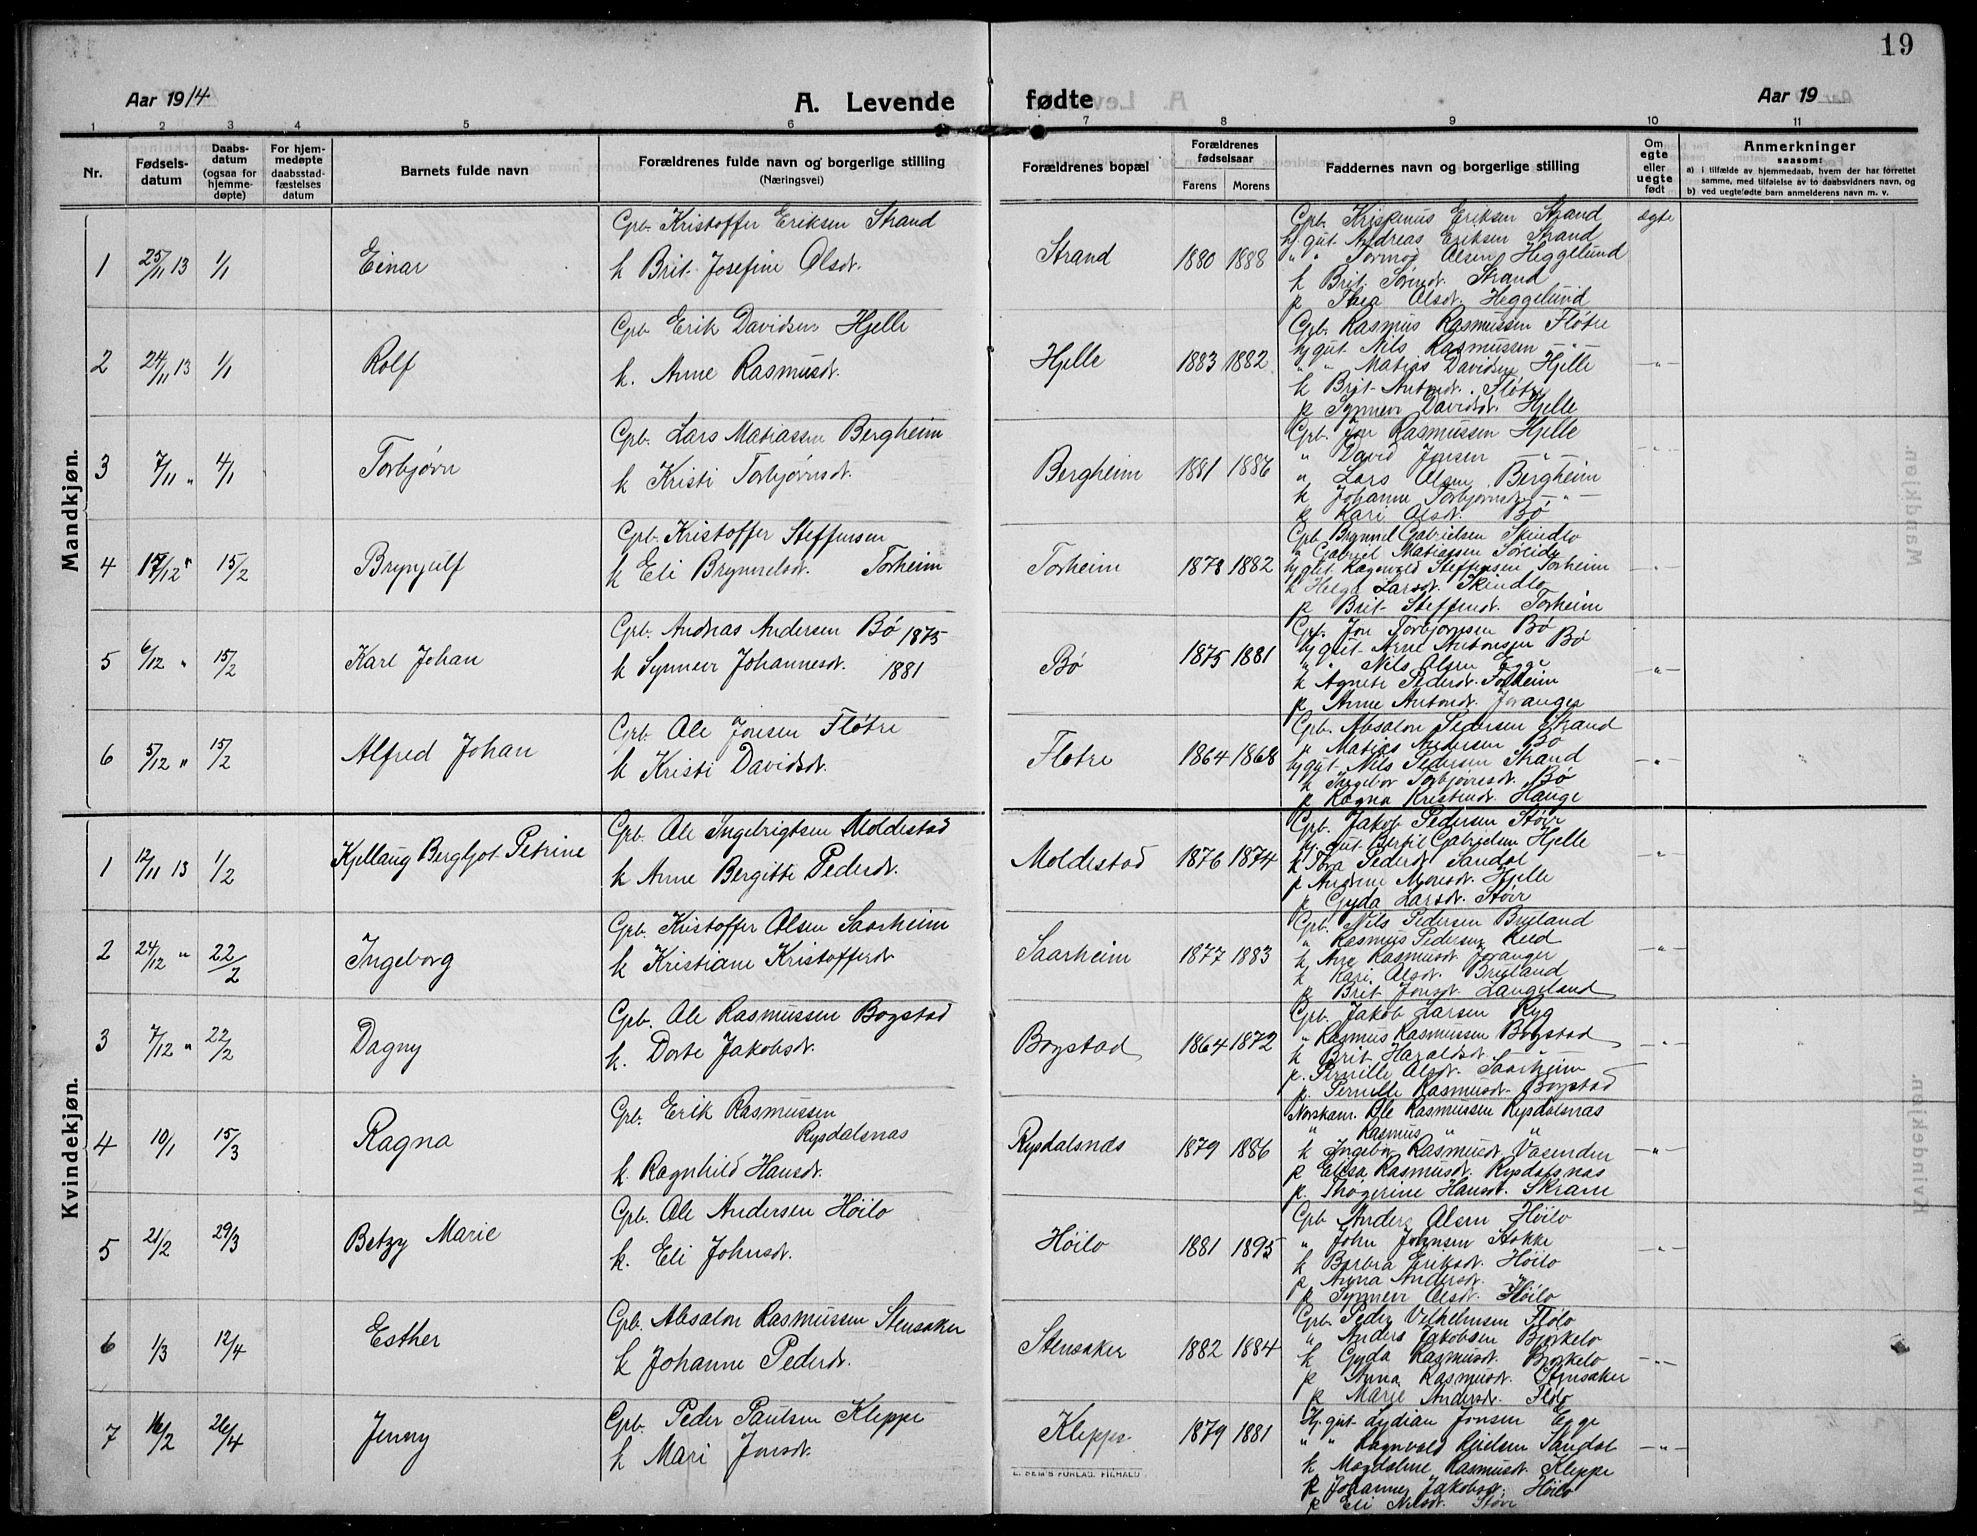 19
Aar 1914 A. Levende fødte Aar 19
1 2 3 4 5 6 7 8 9 10 11
Nr. Fødsels-datum Daabs-datum (ogsaa for hjemme-døpte) For hjem-medøpte daabsstad-fæstelses datum Barnets fulde navn Forældrenes fulde navn og borgerlige stilling (Næringsvei) Forældrenes bopæl Forældrenes fødselsaar Farens Morens Faddernes navn og borgerlige stilling Om egte eller uegte født Anmerkninger saasom: a) i tilfælde av hjemmedaab, hvem der har forrettet samme, med tilføielse av to daabsvidners navn, og b) ved uegtefødte barn anmelderens navn m. v.
Mandkjøn.
1 25/11 13 1/1 Einar Grb. Kristoffer Eriksen Strand
k Brit Josefine Olsdt. Strand 1880 1888
Eriksen Strand ægte
hj. gut. Andreas Eriksen Strand
" " Tormod Olsen Heggelund
k Brit Strand
p Thea Olsdt. Heggelund
2 24/11 13 1/1 Rolf Grb. Erik Davidsen Hjelle
k. Anne Rasmusdt. Hjelle 1883 1882
Grb. Rasmus Rasmussen Fløtre
hj gut. Nils Rasmussen —"—
" " Matias Davidsen Hjelle
k Brit Antondt. Fløtre
p Synneve Davidsdt. Hjelle
3 7/11 " 4/1 Torbjørn Grb. Lars Matiassen Bergheim
k Kristi Torbjørnsdt. Bergheim 1881 1886
Grb. Jon Rasmussen Hjelle
" David Jonsen —"—
" Lars Olsen Bergheim
k Johanne Torbjørnsdt —"—
p Kari Olsdt. Bø
4 15/2 Brynjulf Grb. Kristoffer Steffensen
k Eli Brynnelsdt. Torheim Torheim 1873 1882
Grb Brynnel Gabrielsen Skindlo
" Gabriel Matiassen
hj gut. Ragnvald Steffensen Torheim
k Helga Larsdt. Skindlo
p Brit Steffensdt. Torheim
5 6/12 " 15/2 Karl Johan Grb. Andreas Andersen Bø 1875
k Synneve Johannesdt. 1881 Bø 1875 1881
Grb. Jon Torbjørnsen Bø
hj gut. Arne Antonsen Bø
" " Nils Olsen Egge
k Agnete Pedersdt. Torheim
p Anne Antondt. Joranger
6 5/12 " 15/2 Alfred Johan Grb. Ole Jonsen Fløtre
k Kristi Davidsdt. Fløtre 1864 1868
Grb. Absalon Pedersen Strand
" Matias Andersen Bø
hj gut. Nils Pedersen Strand
k Ingebor Torbjørnsdt. Bø
p Ragna Kristendt. Hauge
Kvindekjøn.
1 12/11 13 1/2 Kjellaug Bergljot Petrine Grb. Ole Ingebrigtsen Moldestad
k Anne Bergitte Pedersdt. Moldestad 1876 1874
Grb. Jakob Pedersen Støir
hj. gut Bertil Gabrielsen Hjelle
k Tora Pedersdt Sandal
p Andrine Monsdt. Hjelle
p Gyda Larsdt. Støir
2 24/12 " 22/2 Ingeborg Grb. Kristoffer Olsen Saarheim
k Kristiane Kristofferdt. Saarheim 1877 1883
Grb. Nils Pedersen Bruland
" Rasmus Pedersen Reid
k Ane Rasmusdt. Joranger
k Kari Olsdt. Bruland
p Brit Jonsdt. Langeland
3 7/12 " 22/2 Dagny Grb. Ole Rasmussen Bogstad
k. Dorte Jakobsdt. Bogstad 1864 1872
Grb. Jakob Larsen Ryg
" Rasmus Rasmussen Bogstad
k Brit Haraldsdt. "
p. Pernille Olsdt. Saarheim
p. Pernille Rasmusdt. Bogstad
4 10/1 15/3 Ragna Grb. Erik Rasmussen
Rysdalsnæs
k Ragnhild Hansdt. Rysdalsnæs 1879 1886
Norskam. Ole Rasmussen Rysdalsnæs
" Rasmus " "
k Ingebor Rasmusdt. Vasenden
p Elisa Rasmusdt. Rysdalsnæs
p. Thøgerine Hansdt. Skram
5 21/2 29/3 Betzy Marie Grb. Ole Andersen Høilo
k. Eli Johnsdt. Høilo 1881 1895
Grb Anders Olsen Høilo
" John Johnsen Stokke
k Barbra Eriksdt. Høilo
p Anna Andersdt.
p Synneve Olsdt. Høilo
6 1/3 12/4 Esther Grb. Absalon Rasmussen Stensaker
k Johanne Pedersdt. Stensaker 1882 1884
Grb Peder Vilhelmsen Flølo
" Anders Jakobsen Bjørkelo
k Gyda Rasmusdt. Bjørkelo
p Anna Rasmusdt. Stensaker
p Marie Andersdt. Flølo
7 16/2 26/4 Jenny Grb. Peder Paulsen Kleppe
k Mari Jonsdt. Kleppe 1879 1881
Hj. gut. Lydian Jonsen Egge
" " Ragnvald Sandal
k Magdalene Rasmusdt. Kleppe
p Johanne Jakobsdt. Høilo
p Eli Nilsdt. Støir